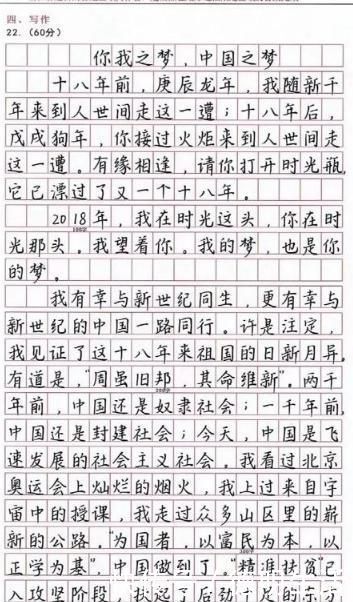 四、写作
22. (60分)
你我之梦，中国之梦
十八年前，庚辰龙年，我随新千
年来到人世间走这一遭；十八年后，
戊戌狗年，你接过火炬来到人世间走
这一遭。有缘相逢，请你打开时光瓶，
它已漂过了又一个十八年。
2018年，我在时光这头，你在时
光那头。我望着你。我的梦，也是你
的梦。
我有幸与新世纪同生，更有幸与
新世纪的中国一路同行。许是注定，
我见证了这十八年来祖国的日新月异。
有道是，“周虽旧邦，其命维新”。两千
年前，中国还是奴隶社会；一千年前，
中国还是封建社会；今天，中国是飞
速发展的社会主义社会。我看过北京
奥运会上灿烂的烟火，我上过来自宇
宙中的授课，我走过众多山区里的崭
新的公路。“为国者，以富民为本，以
正学为基”，中国做到了。“精准扶贫”已
入攻坚阶段，